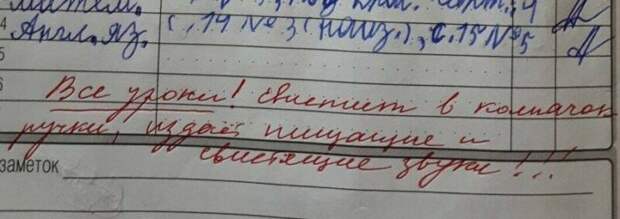 4 Англ. яз. с. 14 № 3 (наиз.), с. 15 № 5
5
6
Все уроки! свистит в колпачок
ручки, издаёт пищащие и
свистящие звуки!!!
заметок